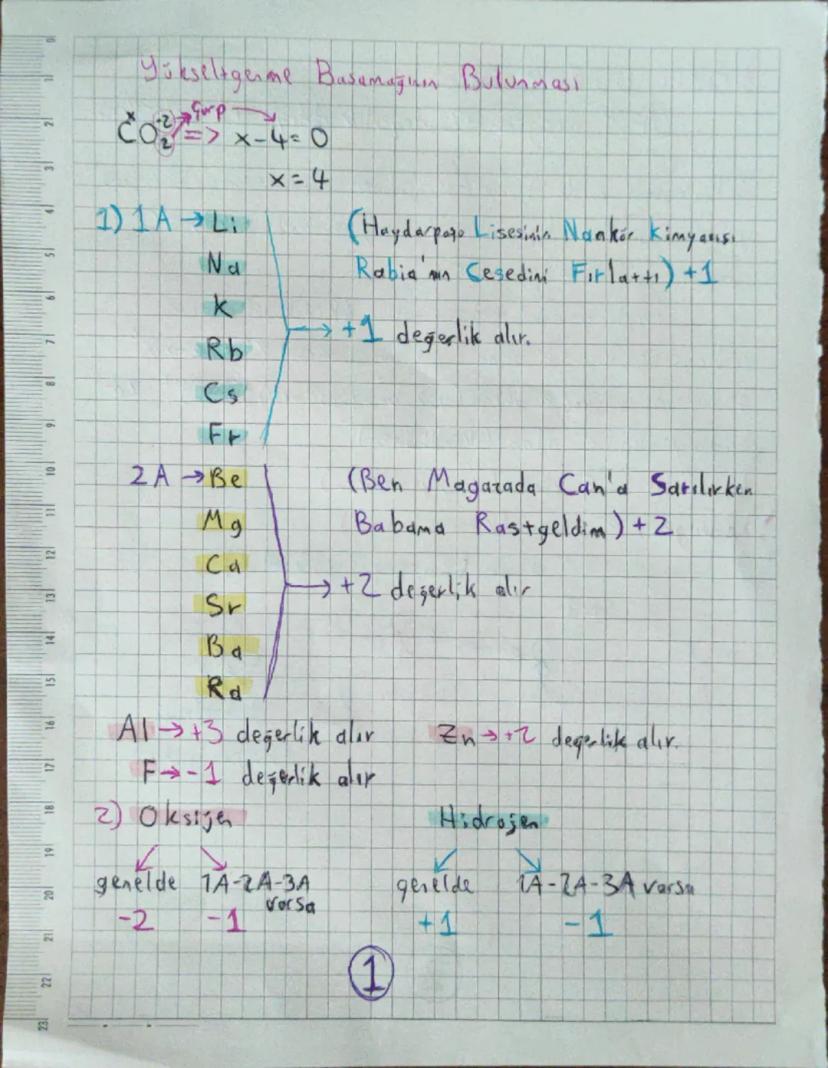 Yükseltgenme Basamağının Bulunması
Çarp
x -2
CO2 => x-4=0
x=4
1) 1A → Li (Haydarpaşa Lisesinin Nankör Kimyacısı
Na Rabia'nın Cesedini Fırlattı) +1
K
→ +1 değerlik alır.
Rb
Cs
Fr
2A → Be (Ben Magazada Can'a Sarılırken
Mg Babama Rastgeldim) +2
Ca
→ +2 değerlik alır
Sr
Ba
Ra
Al → +3 değerlik alır Zn → +2 değerlik alır.
F → -1 değerlik alır
2) Oksijen Hidrojen
genelde 1A-2A-3A varsa genelde 1A-2A-3A varsa
-2 -1 +1 -1
1
0
1
2
3
4
5
6
7
8
9
10
11
12
13
14
15
16
17
18
19
20
21
22
23